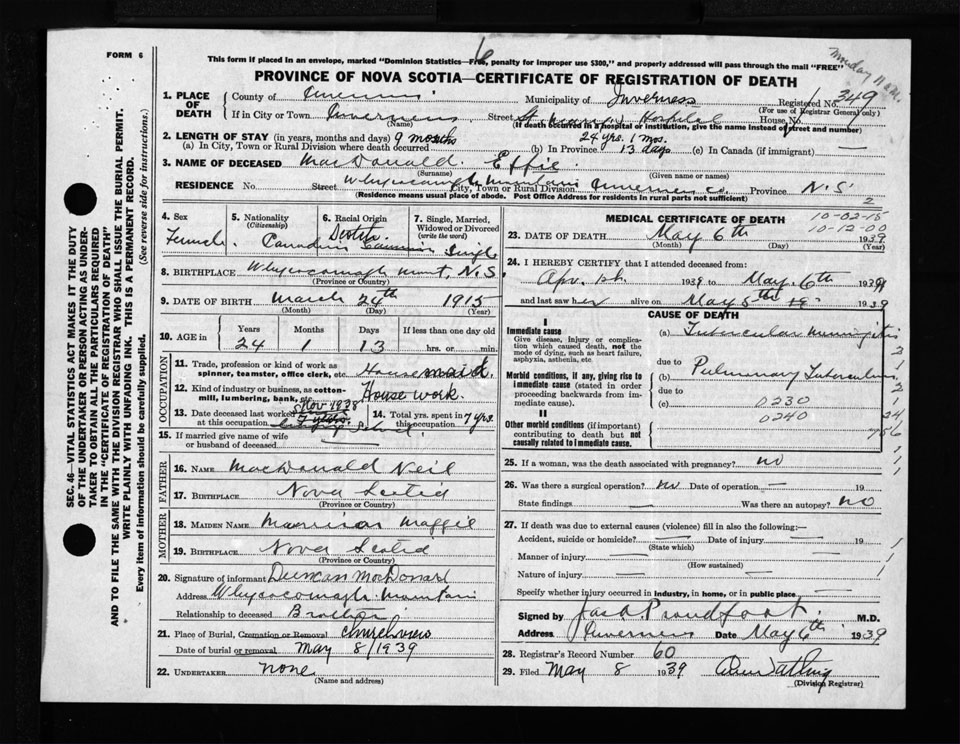 FORM 6
This form if placed in an envelope, marked "Dominion Statistics—Free, penalty for improper use $300," and properly addressed will pass through the mail "FREE"
Monday 11 a.m.
PROVINCE OF NOVA SCOTIA—CERTIFICATE OF REGISTRATION OF DEATH
1. PLACE OF DEATH
County of Inverness Municipality of Inverness Registered No. 349
(For use of Registrar General only)
If in City or Town Inverness Street St Mary's Hospital House No.
(Name) (If death occurred in a hospital or institution, give the name instead of street and number)
2. LENGTH OF STAY (in years, months and days) 9 months 24 yrs. 1 mos.
(a) In City, Town or Rural Division where death occurred (b) In Province 13 days (c) In Canada (if immigrant) —
3. NAME OF DECEASED MacDonald. Effie.
(Surname) (Given name or names)
RESIDENCE No. Street Whycocomagh Mountain Inverness Co. Province N.S.
City, Town or Rural Division
(Residence means usual place of abode. Post Office Address for residents in rural parts not sufficient)
2
4. Sex Female.
5. Nationality (Citizenship) Canadian
6. Racial Origin Scotch
7. Single, Married, Widowed or Divorced (write the word) Single
8. BIRTHPLACE Whycocomagh Mount, N.S.
(Province or Country)
9. DATE OF BIRTH March 24th 1915
(Month) (Day) (Year)
10. AGE in
Years Months Days If less than one day old
24 1 13 hrs. or min.
OCCUPATION
11. Trade, profession or kind of work as spinner, teamster, office clerk, etc. Housemaid.
12. Kind of industry or business, as cotton-mill, lumbering, bank, etc. House work.
13. Date deceased last worked at this occupation Nov 1938
14. Total yrs. spent in this occupation 7 yrs.
15. If married give name of wife or husband of deceased
FATHER
16. NAME MacDonald Neil
17. BIRTHPLACE Nova Scotia
(Province or Country)
MOTHER
18. MAIDEN NAME Morrison Maggie
19. BIRTHPLACE Nova Scotia
(Province or Country)
20. Signature of informant Duncan MacDonald
Address Whycocomagh Mountain
Relationship to deceased Brother
21. Place of Burial, Cremation or Removal Churchview
Date of burial or removal May 8/1939
22. UNDERTAKER none
(Name and address)
MEDICAL CERTIFICATE OF DEATH
10-02-15
10-12-00
23. DATE OF DEATH May 6th 1939
(Month) (Day) (Year)
24. I HEREBY CERTIFY that I attended deceased from:
to May. 6th 1939
and last saw her alive on May 5th 1939
CAUSE OF DEATH
I
Immediate cause
Give disease, injury, or complication which caused death, not the mode of dying, such as heart failure, asphyxia, asthenia, etc.
(a) Tubercular Meningitis
due to
Morbid conditions, if any, giving rise to immediate cause (stated in order proceeding backwards from immediate cause).
(b) Pulmonary Tuberculosis
due to
(c) 0230
0240
II
Other morbid conditions (if important) contributing to death but not causally related to immediate cause.
25. If a woman, was the death associated with pregnancy? no
26. Was there a surgical operation? no Date of operation — 19
State findings — Was there an autopsy? no
27. If death was due to external causes (violence) fill in also the following:—
Accident, suicide or homicide? — Date of injury — 19
(State which)
Manner of injury —
(How sustained)
Nature of injury —
Specify whether injury occurred in industry, in home, or in public place —
Signed by Jas. A. Proudfoot. M.D.
Address Inverness Date May 6th 1939
28. Registrar's Record Number 60
29. Filed May 8 1939
(Division Registrar)
SEC. 46—VITAL STATISTICS ACT MAKES IT THE DUTY
OF THE UNDERTAKER OR PERSON ACTING AS UNDER-
TAKER TO OBTAIN ALL THE PARTICULARS REQUIRED
IN THE "CERTIFICATE OF REGISTRATION OF DEATH"
AND TO FILE THE SAME WITH THE DIVISION REGISTRAR WHO SHALL ISSUE THE BURIAL PERMIT.
WRITE PLAINLY WITH UNFADING INK. THIS IS A PERMANENT RECORD.
Every item of information should be carefully supplied. (See reverse side for instructions.)